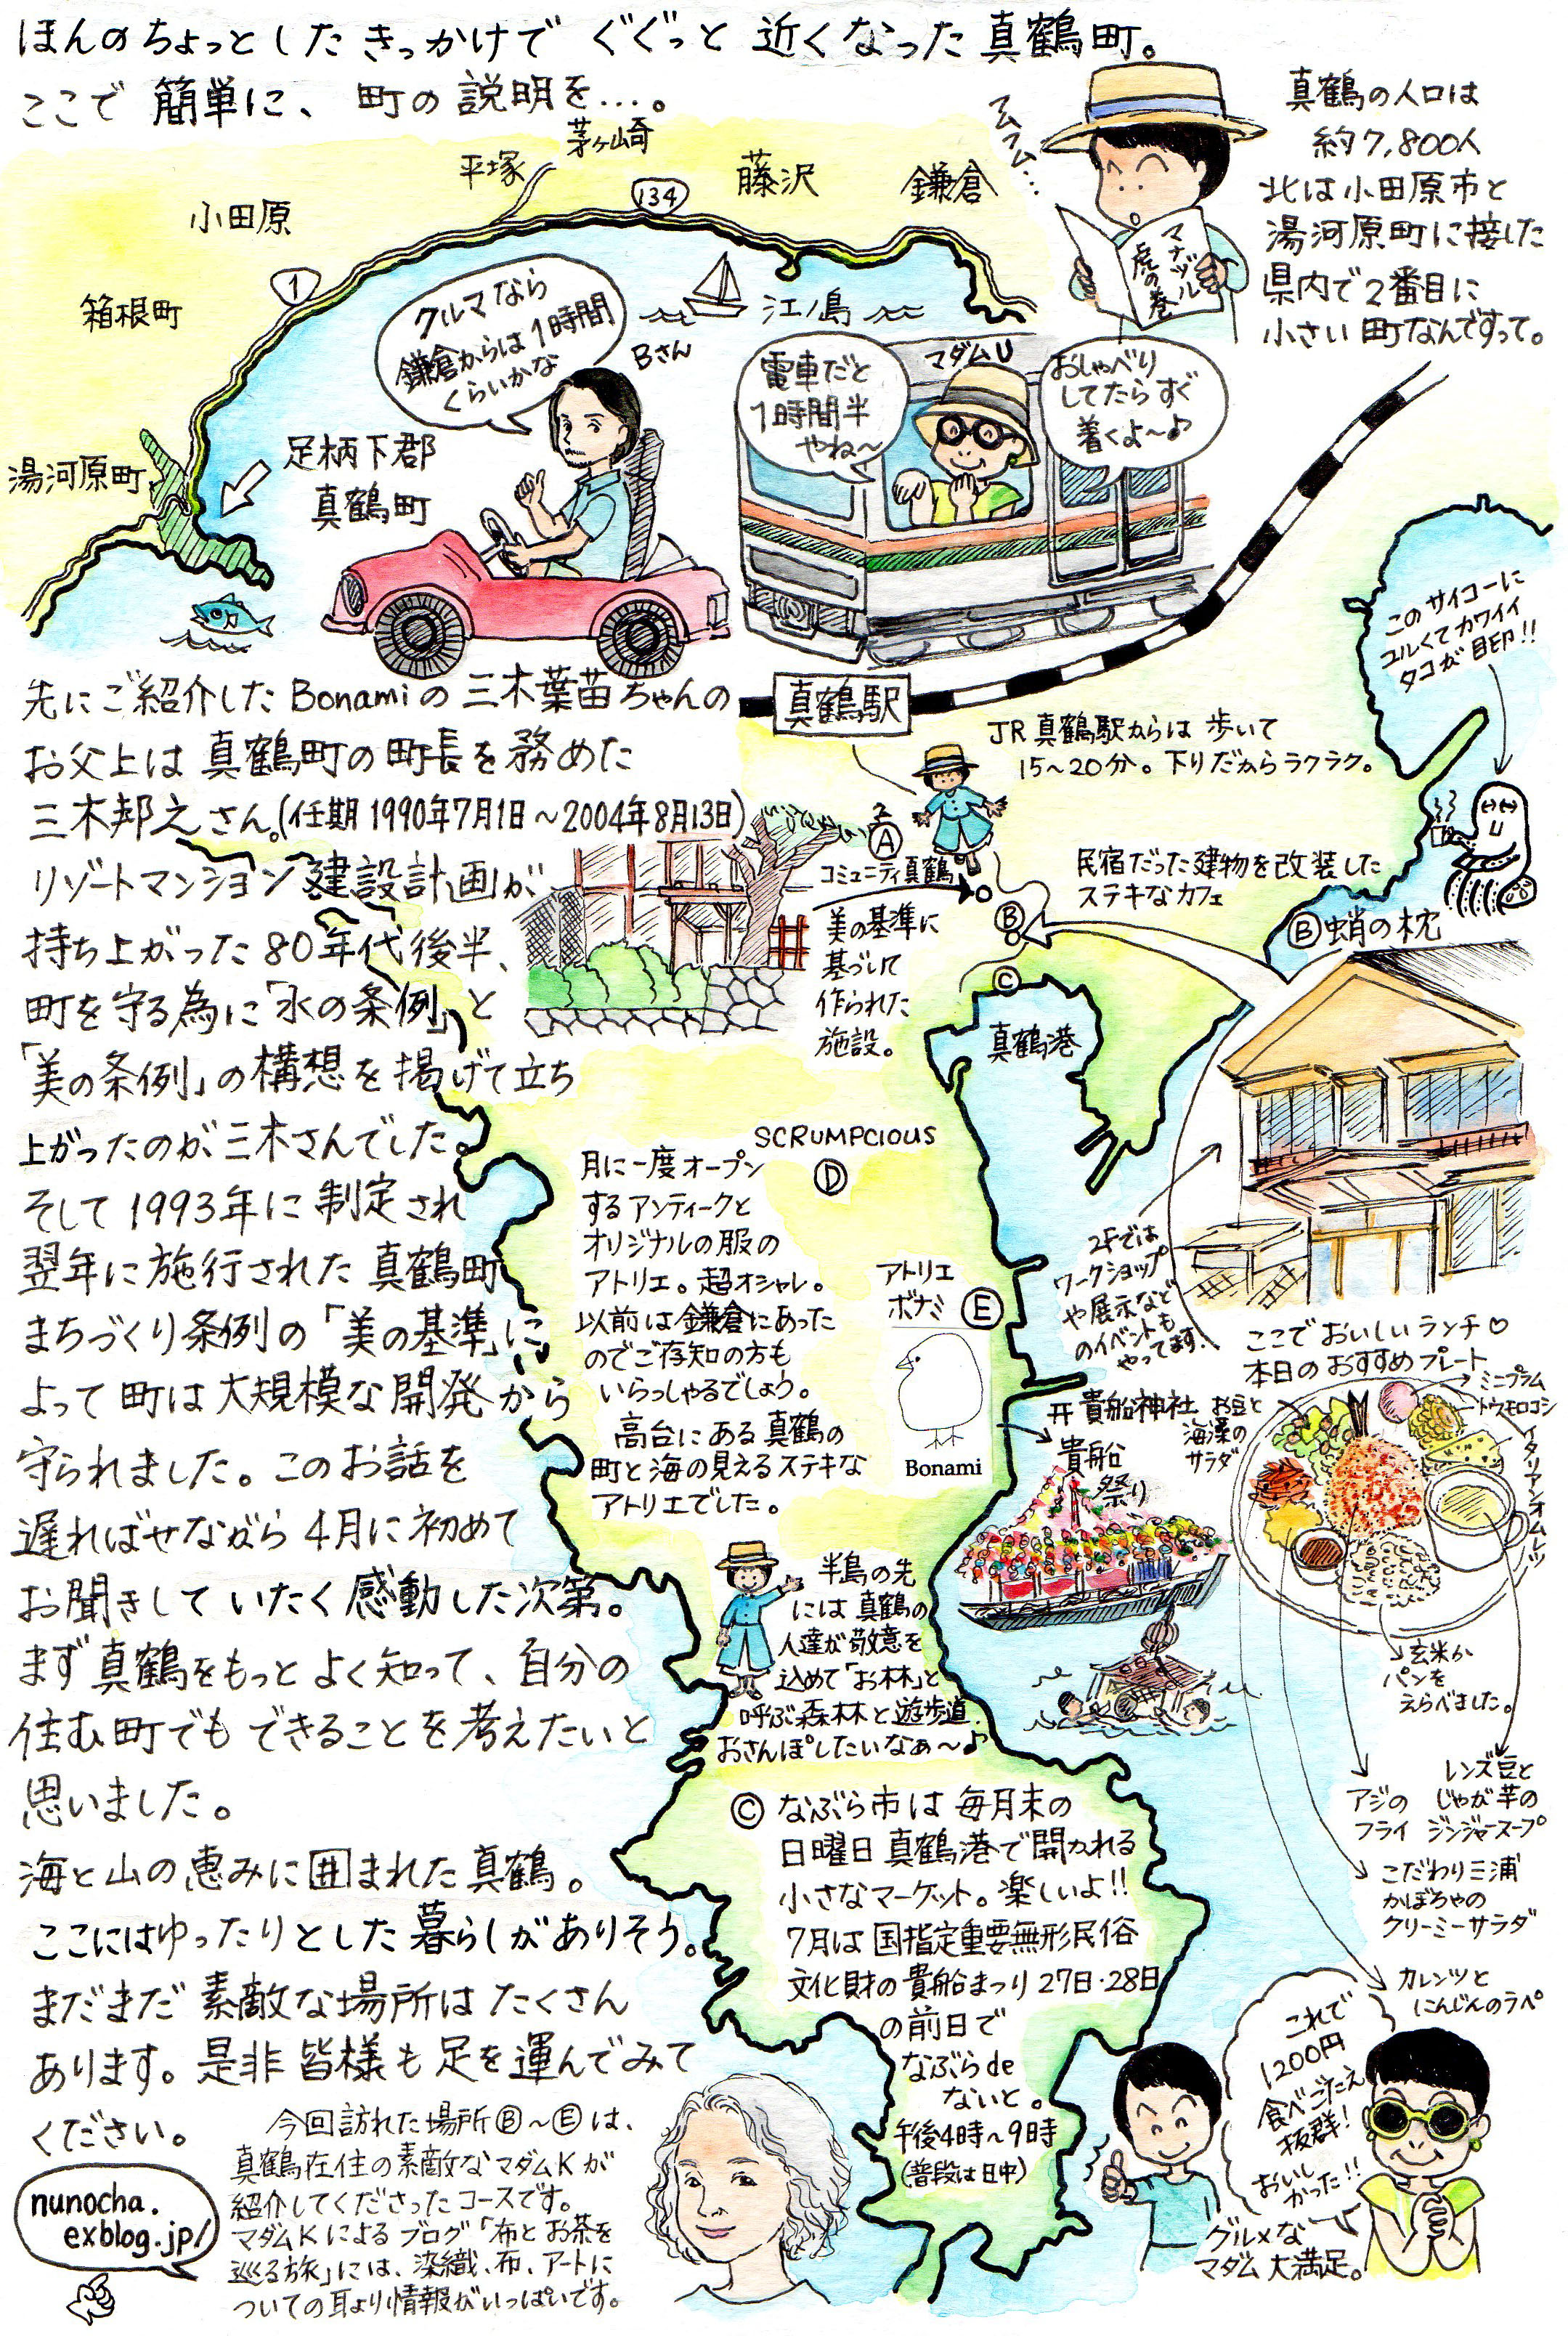 ほんのちょっとした きっかけで ぐぐっと 近くなった 真鶴町。
ここで 簡単に、町の 説明を…。
真鶴の人口は
約7,800人
北は小田原市と
湯河原町に接した
県内で2番目に
小さい町なんですって。
フムフム…
マナヅル
虎の巻
茅ヶ崎
平塚
134
藤沢
鎌倉
小田原
1
箱根町
江ノ島
湯河原町
足柄下郡
真鶴町
クルマなら
鎌倉からは1時間
くらいかな
Bさん
マダムU
電車だと
1時間半
やね〜
おしゃべり
してたらすぐ
着くよ〜♪
真鶴駅
JR真鶴駅からは 歩いて
15〜20分。下りだからラクラク。
このサイコーに
ユルくてカワイイ
タコが目印!!
先にご紹介した Bonamiの 三木葉苗ちゃんの
お父上は 真鶴町の町長を務めた
三木邦之さん。(任期 1990年7月1日〜2004年8月13日)
リゾートマンション建設計画が
持ち上がった 80年代後半、
町を守る為に「水の条例」と
「美の条例」の構想を掲げて立ち
上がったのが 三木さんでした。
そして 1993年に 制定され
翌年に施行された 真鶴町
まちづくり条例の「美の基準」に
よって 町は 大規模な開発から
守られました。このお話を
遅ればせながら 4月に初めて
お聞きして いたく感動した次第。
まず真鶴をもっと よく知って、自分の
住む町でも できることを考えたいと
思いました。
海と山の恵みに囲まれた真鶴。
ここにはゆったりとした暮らしがありそう。
まだまだ 素敵な場所は たくさん
あります。是非 皆様も 足を運んでみて
ください。
Ⓐ
コミュニティ真鶴
美の基準に
基づいて
作られた
施設。
民宿だった建物を改装した
ステキなカフェ
Ⓑ
Ⓑ蛸の枕
Ⓒ
真鶴港
2Fでは
ワークショップ
や展示など
のイベントも
やってます。
SCRUMPCIOUS
Ⓓ
月に一度オープン
するアンティークと
オリジナルの服の
アトリエ。超オシャレ。
以前は鎌倉にあった
のでご存知の方も
いらっしゃるでしょう。
高台にある真鶴の
町と海の見えるステキな
アトリエでした。
アトリエ
ボナミ Ⓔ
Bonami
貴船神社
貴船
祭り
ここでおいしいランチ♡
本日のおすすめプレート
ミニプラム
トウモロコシ
イタリアンオムレツ
お豆と
海藻の
サラダ
玄米か
パンを
えらべました。
レンズ豆と
じゃが芋の
ジンジャースープ
アジの
フライ
こだわり三浦
かぼちゃの
クリーミーサラダ
カレンツと
にんじんのラペ
半島の先
には 真鶴の
人達が敬意を
込めて「お林」と
呼ぶ森林と遊歩道。
おさんぽしたいなぁ〜♪
Ⓒ なぶら市は 毎月末の
日曜日 真鶴港で開かれる
小さなマーケット。楽しいよ!!
7月は 国指定重要無形民俗
文化財の貴船まつり 27日・28日
の前日で
なぶらde
ないと。
午後4時〜9時
(普段は日中)
これで
1200円
食べごたえ
抜群!
おいし
かった!!
グルメな
マダム大満足。
今回訪れた場所Ⓑ〜Ⓔは、
真鶴在住の素敵なマダムKが
紹介してくださったコースです。
マダムKによる ブログ「布とお茶を
巡る旅」には、染織、布、アートに
ついての耳より情報がいっぱいです。
nunocha.
exblog.jp/